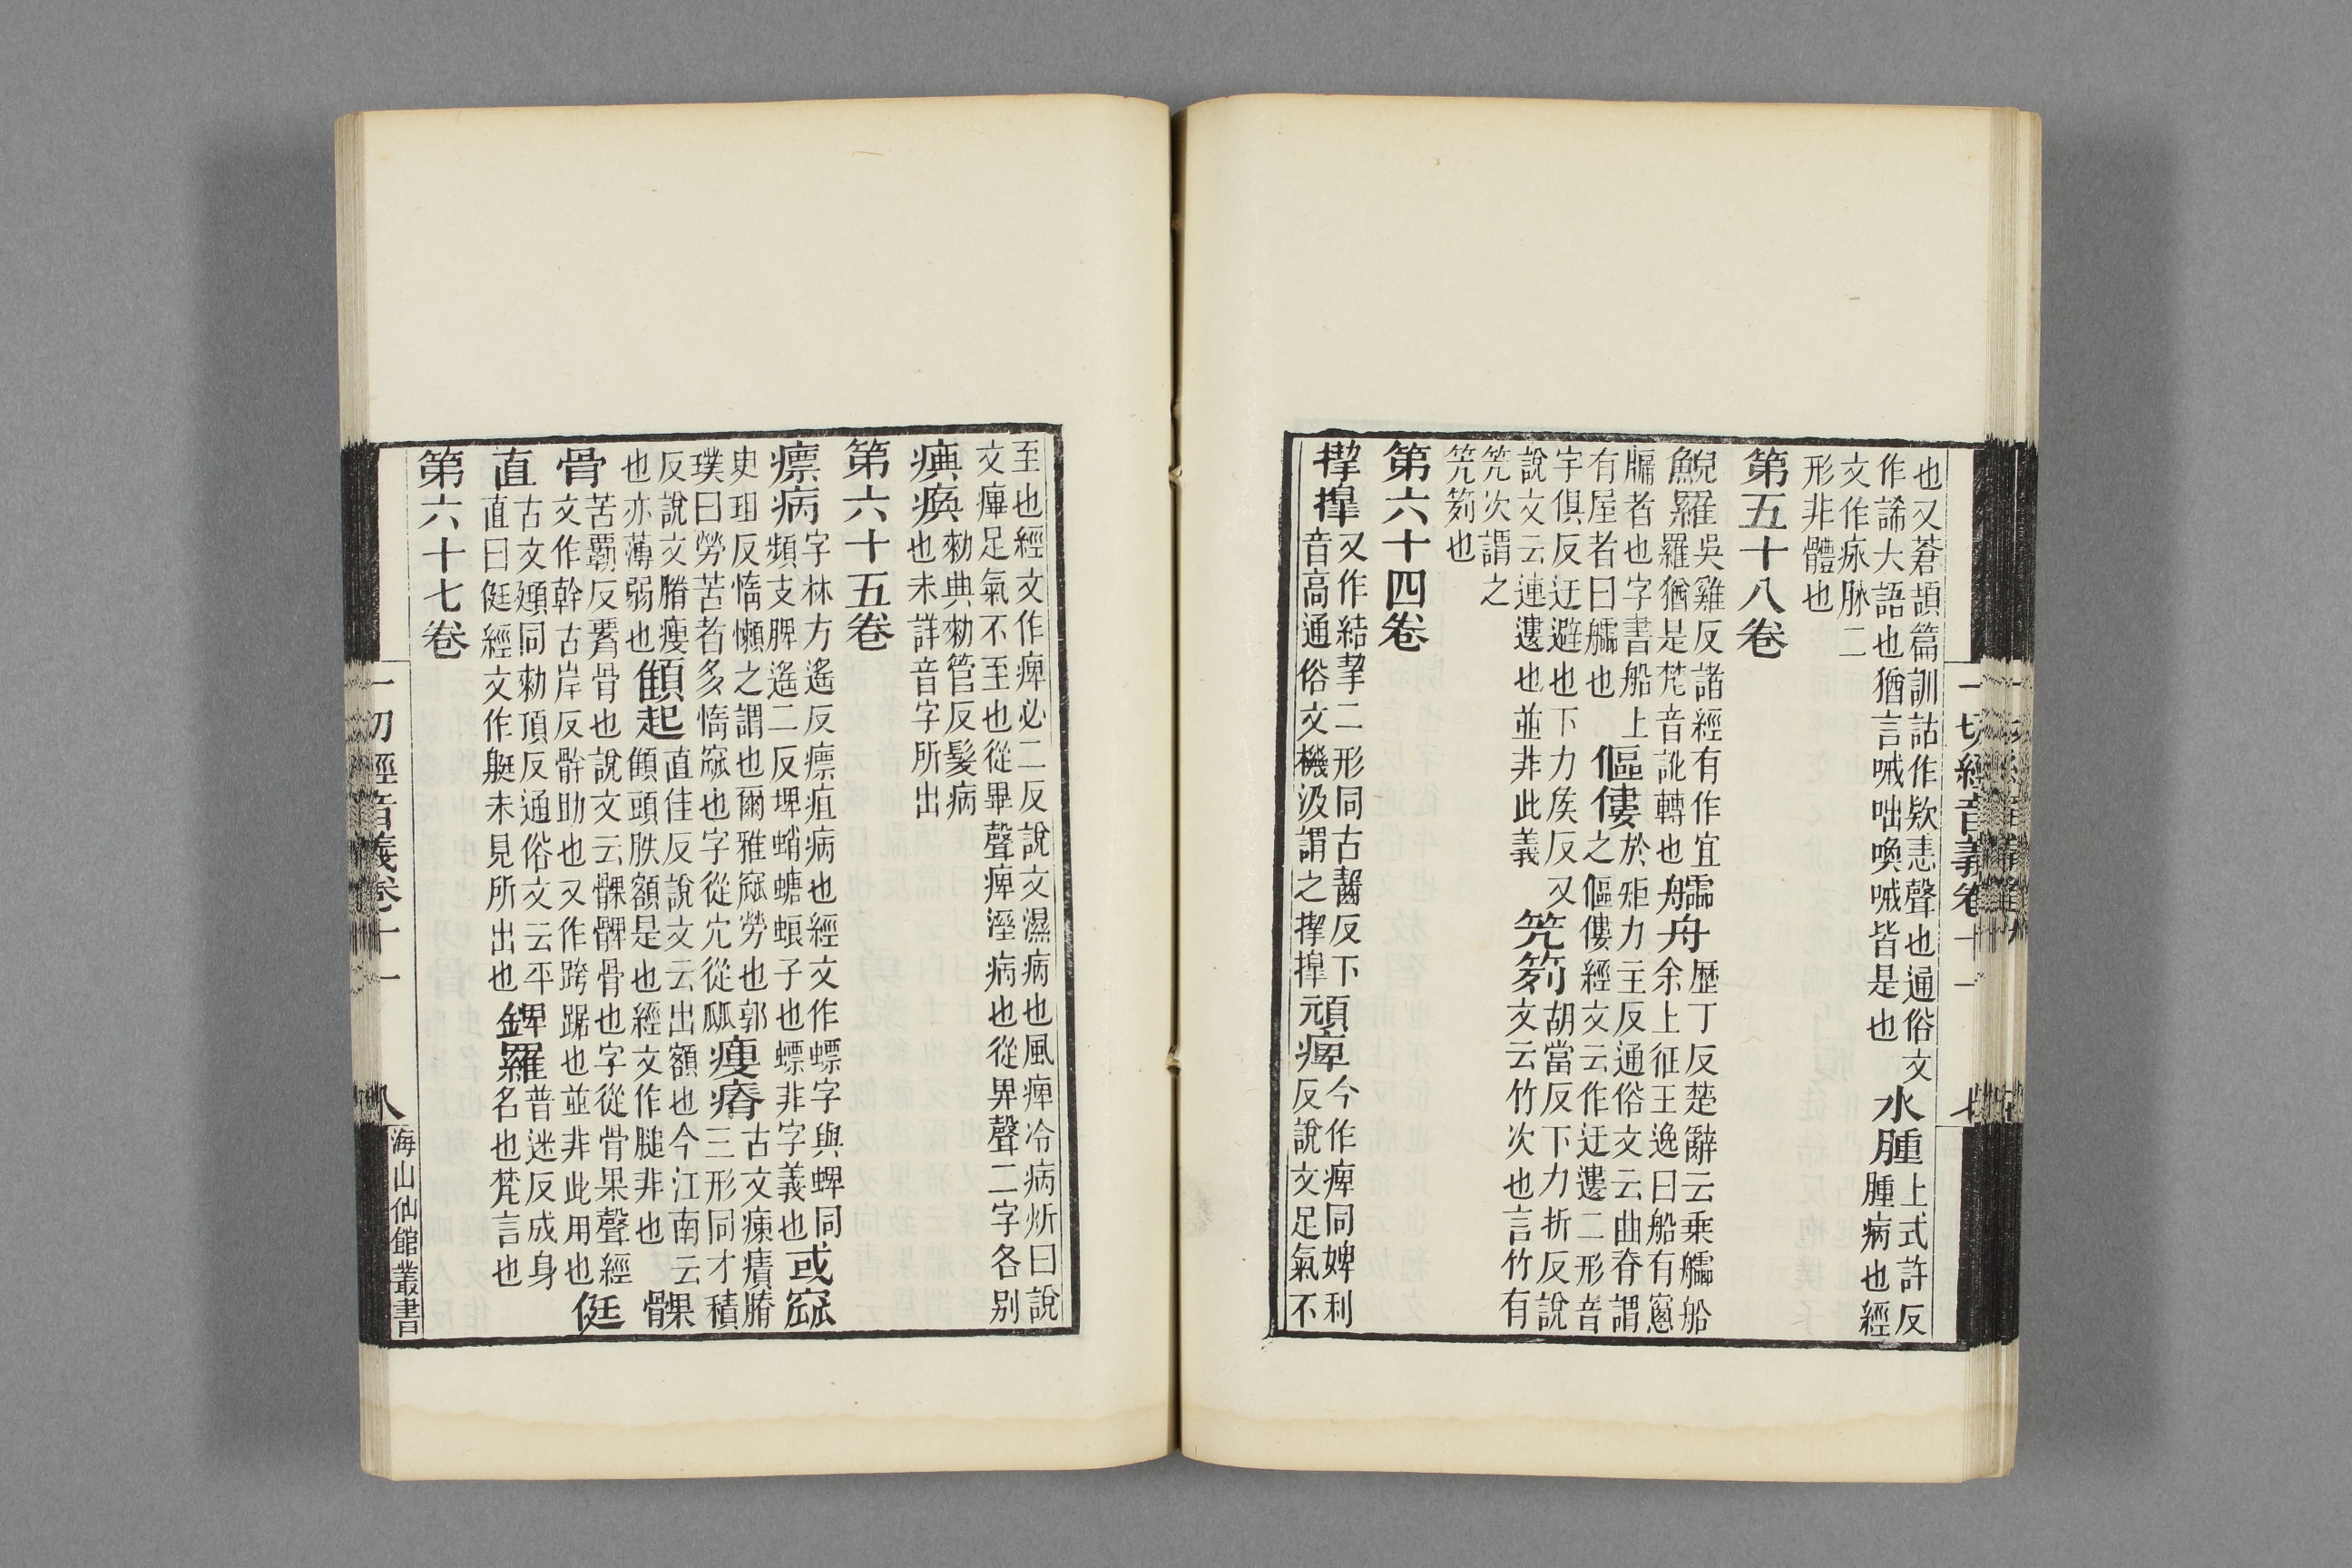 也又蒼頡篇訓詁作欵恚聲也通俗文
作諦大語也猶言喊咄喚喊皆是也
水腫
上式許反
腫病也經
文作𤵸脉二
形非體也
第五十八卷
鯢羅
吳雞反諸經有作宜
羅猶是梵音訛轉也
艫舟
歷丁反楚辭云乗艫船
余上征王逸曰船有窻
牖者也字書船上
有屋者曰艫也
傴僂
於矩力主反通俗文云曲脊謂
之傴僂經文云作迃遱二形音
宇俱反迃避也下力矦反又
說文云連遱也並非此義
笐笏
胡當反下力折反說
文云竹次也言竹有
笐次謂之
笐笏也
第六十四卷
㨮揘
又作結挈二形同古齧反下
音高通俗文機汲謂之㨮揘
頑痺
今作痺同婢利
反說文足氣不
至也經文作痺必二反說文濕病也風痺冷病炘曰說
文㾝足氣不至也從畢聲痺溼病也從畀聲二字各别
㾃瘓
勑典勑管反髮病
也未詳音字所出
第六十五卷
瘭病
字林方遙反瘭疽病也經文作螵字與蜱同
頻支脾遙二反埤蛸螗蜋子也螵非字義也
或窳
史瑂反惰懶之謂也爾雅窳勞也郭
璞曰勞苦者多惰窳也字從宂從㼌
瘦瘠
古文瘶㾊膌
三形同才積
反說文膌瘦
也亦薄弱也
顀起
直佳反說文云出額也今江南云
顀頭胅額是也經文作膇非也
髁
骨
苦覇反䯊骨也說文云髁髀骨也字從骨果聲經
文作幹古岸反骭助也又作跨踞也並非此用也
侹
直
古文頲同勑頂反通俗文云平
直曰侹經文作艇未見所出也
錍羅
普迷反成身
名也梵言也
第六十七卷
一切經音義卷十一
七
一切經音義卷十一
八
海山仙館叢書